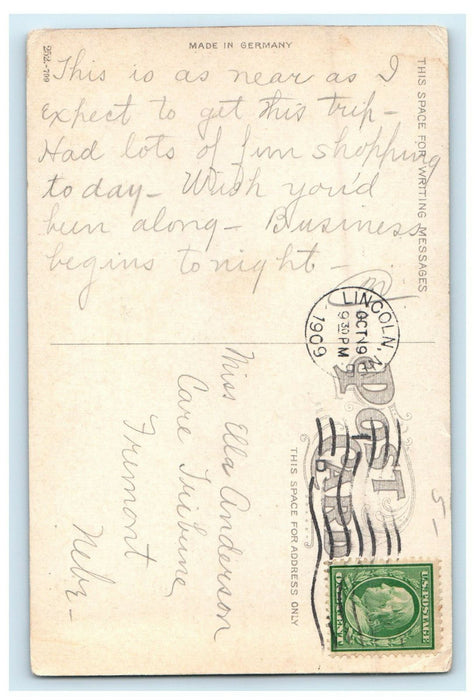 MADE IN GERMANY
252.-799
This is as near as I
expect to get this trip-
Had lots of fun shopping
today- Wish you'd
been along- Business
begins tonight-
THIS SPACE FOR WRITING MESSAGES
LINCOLN, N
OCT 19
930 PM
1909
POST CARD
THIS SPACE FOR ADDRESS ONLY
Miss Ella Anderson
Care Tribune,
Fremont
Nebr-
5-
U.S. POSTAGE
ONE CENT